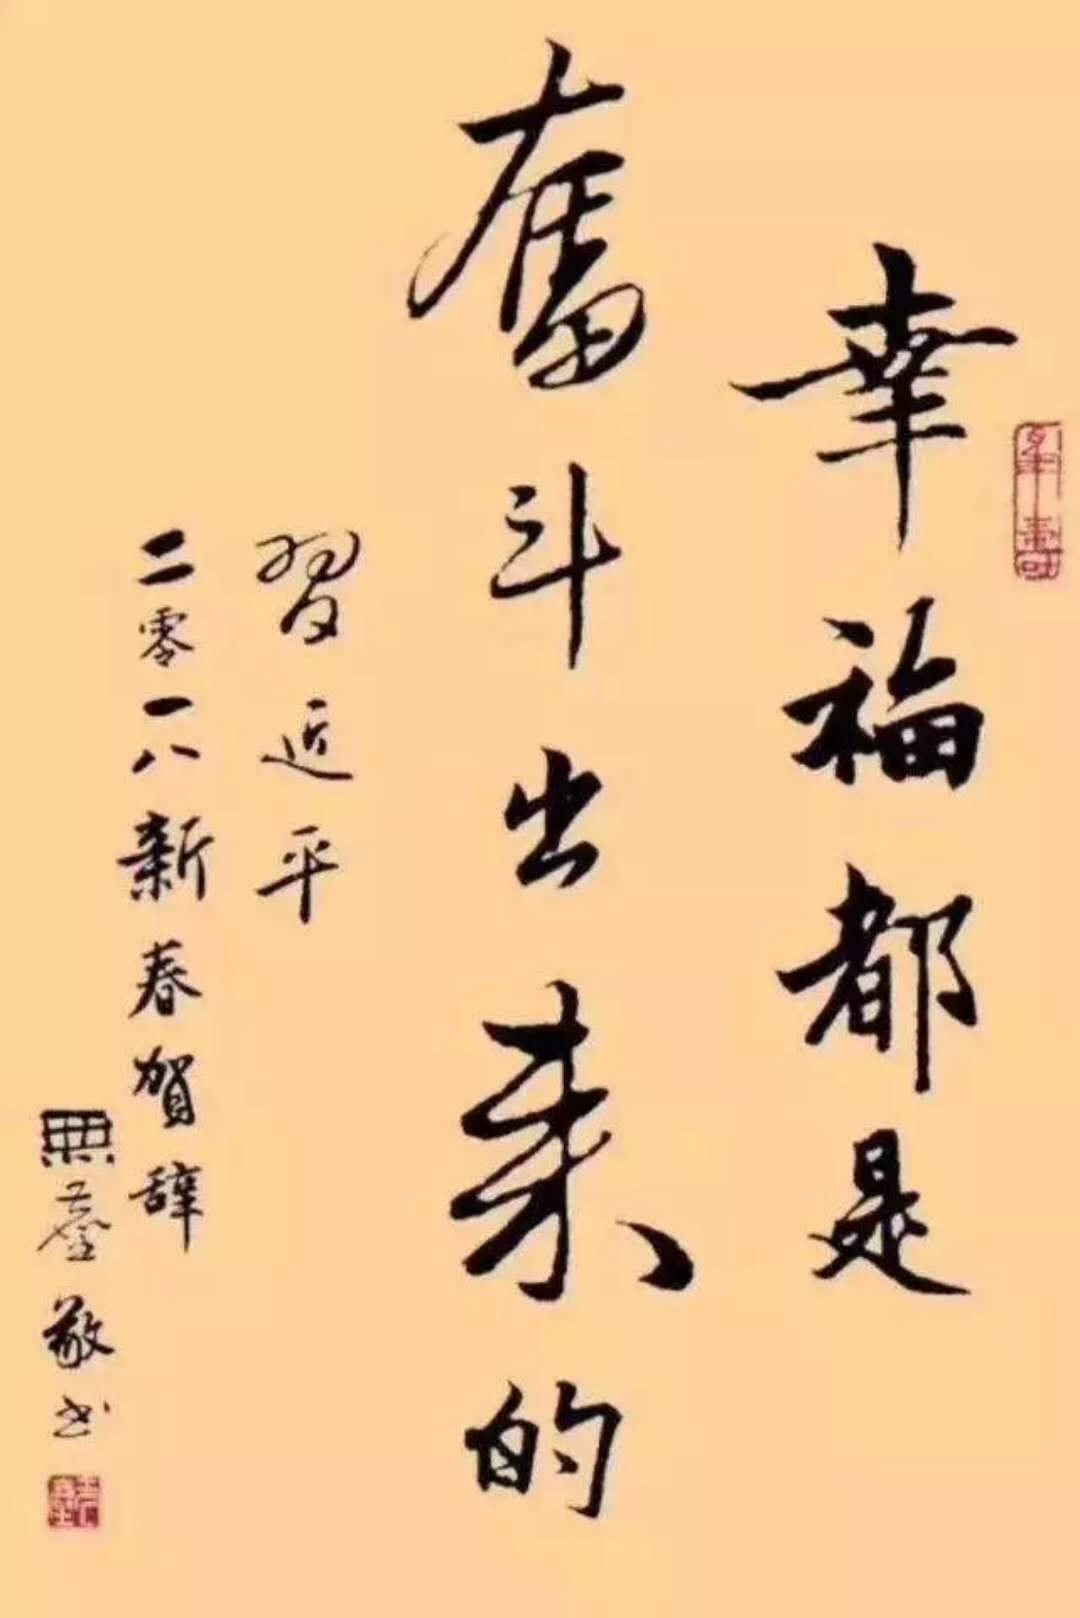 幸福都是
奮斗出来的
習近平
二零一八新春賀辞
敬书